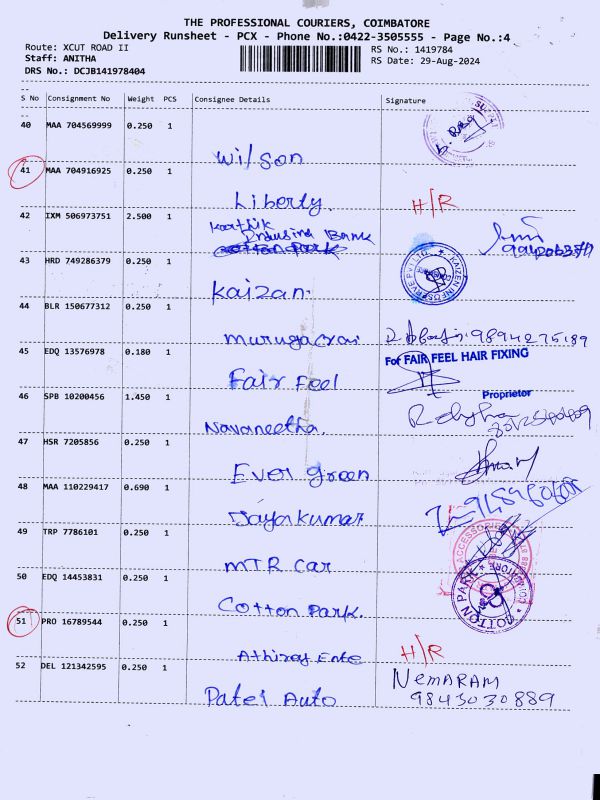 THE PROFESSIONAL COURIERS, COIMBATORE
Delivery Runsheet - PCX - Phone No.:0422-3505555 - Page No.:4
Route: XCUT ROAD II
RS No.: 1419784
Staff: ANITHA
RS Date: 29-Aug-2024
DRS No.: DCJB141978404
S No Consignment No Weight PCS Consignee Details Signature
40 MAA 704569999 0.250 1
Wilson
41 MAA 704916925 0.250 1
Liberty. H/R
42 IXM 506973751 2.500 1
Karthik
Indusind Bank
Cotton Park
43 HRD 749286379 0.250 1
Kaizan.
KAIZEN INFOSERVE PVT LTD
44 BLR 150677312 0.250 1
9894275189
45 EDQ 13576978 0.180 1
Fair Feel
For FAIR FEEL HAIR FIXING
Proprietor
46 SPB 10200456 1.450 1
Navaneetha.
47 HSR 7205856 0.250 1
Ever green
48 MAA 110229417 0.690 1
Jayakumar
49 TRP 7786101 0.250 1
MTR Car
50 EDQ 14453831 0.250 1
Cotton Park.
COTTON PARK
51 PRO 16789544 0.250 1
H/R
52 DEL 121342595 0.250 1
Patel Auto
NEMARAM
9843030889